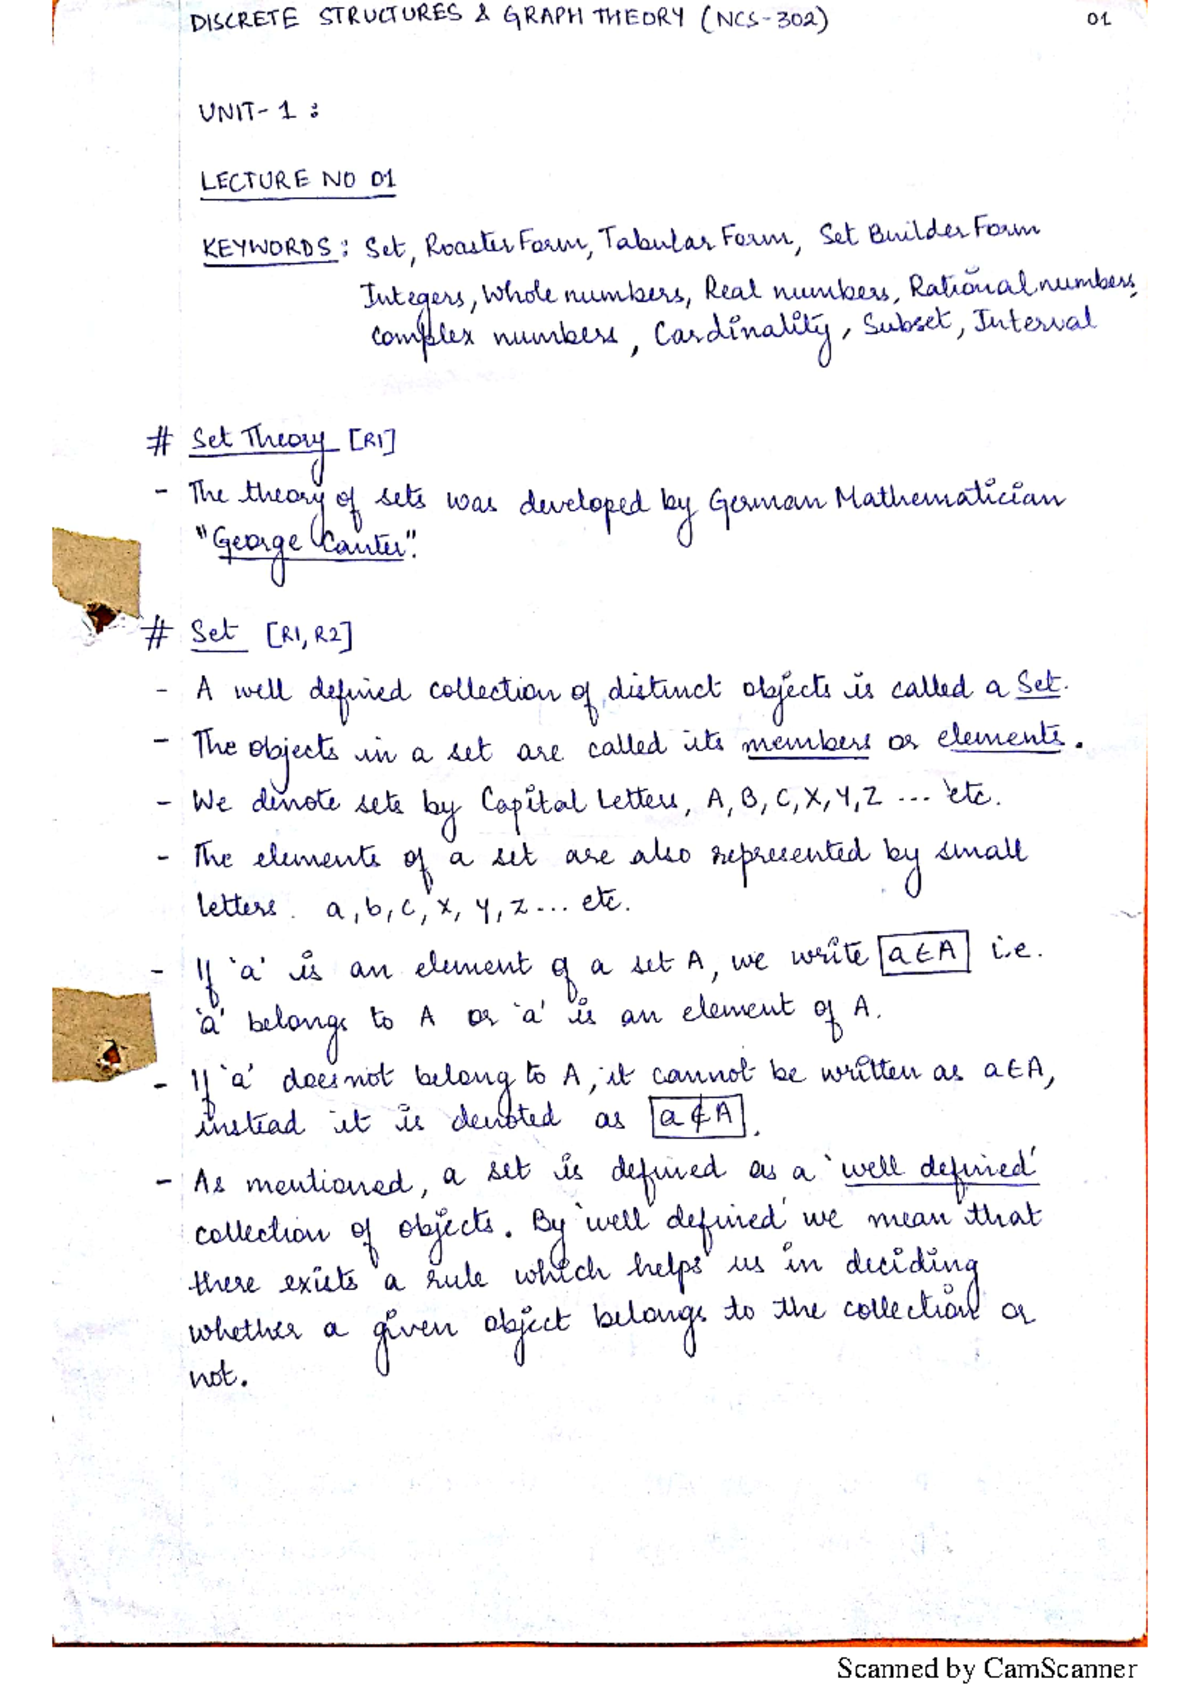 DISCRETE STRUCTURES & GRAPH THEORY (NCS-302) 01
UNIT-1 :
LECTURE NO 01
KEYWORDS : Set, Roaster Form, Tabular Form, Set Builder Form
Integers, Whole numbers, Real numbers, Rational numbers,
complex numbers, Cardinality, Subset, Interval
# Set Theory [R1]
- The theory of sets was developed by German Mathematician
"George Canter".
# Set [R1, R2]
- A well defined collection of distinct objects is called a Set.
- The objects in a set are called its members or elements.
- We denote sets by Capital Letters, A, B, C, X, Y, Z ... etc.
- The elements of a set are also represented by small
letters. a, b, c, x, y, z ... etc.
- If 'a' is an element of a set A, we write a∈A i.e.
'a' belongs to A or 'a' is an element of A.
- If 'a' does not belong to A, it cannot be written as a∈A,
instead it is denoted as a∉A.
- As mentioned, a set is defined as a 'well defined'
collection of objects. By 'well defined' we mean that
there exists a rule which helps us in deciding
whether a given object belongs to the collection or
not.
Scanned by CamScanner